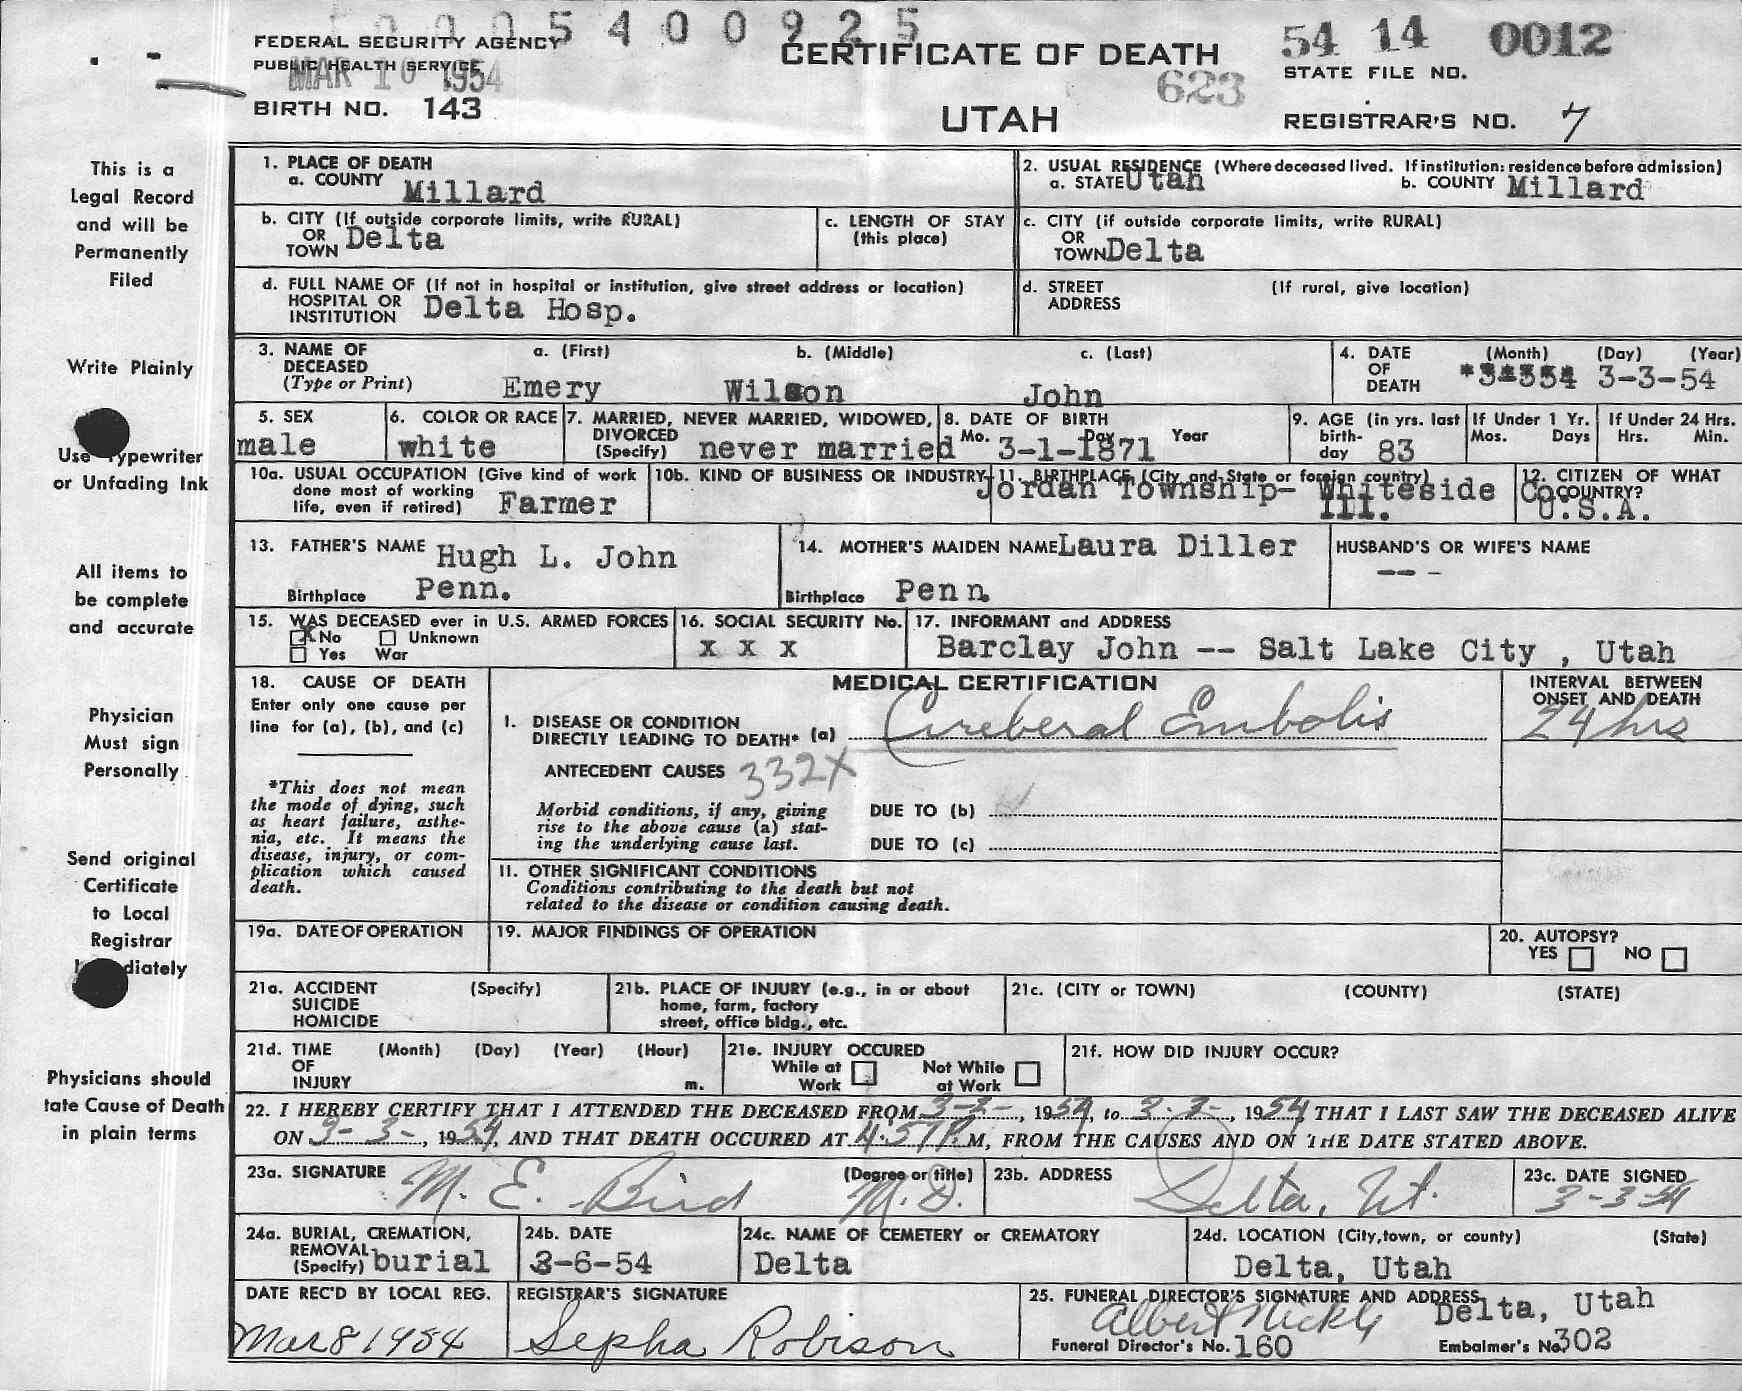 0005400925
FEDERAL SECURITY AGENCY
PUBLIC HEALTH SERVICE
MAR 10 1954
BIRTH NO. 143
CERTIFICATE OF DEATH
623
UTAH
54 14 0012
STATE FILE NO.
REGISTRAR'S NO. 7
This is a
Legal Record
and will be
Permanently
Filed
Write Plainly
Use Typewriter
or Unfading Ink
All items to
be complete
and accurate
Physician
Must sign
Personally
Send original
Certificate
to Local
Registrar
diately
Physicians should
tate Cause of Death
in plain terms
1. PLACE OF DEATH
a. COUNTY Millard
2. USUAL RESIDENCE (Where deceased lived. If institution: residence before admission)
a. STATE Utah b. COUNTY Millard
b. CITY (If outside corporate limits, write RURAL)
OR
TOWN Delta
c. LENGTH OF STAY
(this place)
c. CITY (if outside corporate limits, write RURAL)
OR
TOWN Delta
d. FULL NAME OF (If not in hospital or institution, give street address or location)
HOSPITAL OR
INSTITUTION Delta Hosp.
d. STREET (If rural, give location)
ADDRESS
3. NAME OF a. (First) b. (Middle) c. (Last)
DECEASED
(Type or Print) Emery Wilson John
4. DATE (Month) (Day) (Year)
OF
DEATH 3-3-54
5. SEX
male
6. COLOR OR RACE
white
7. MARRIED, NEVER MARRIED, WIDOWED,
DIVORCED
(Specify) never married
8. DATE OF BIRTH
Mo. Day Year
3-1-1871
9. AGE (in yrs. last
birth-
day 83
If Under 1 Yr.
Mos. Days
If Under 24 Hrs.
Hrs. Min.
10a. USUAL OCCUPATION (Give kind of work
done most of working
life, even if retired) Farmer
10b. KIND OF BUSINESS OR INDUSTRY
11. BIRTHPLACE (City and State or foreign country)
Jordan Township- Whiteside Co
Ill.
12. CITIZEN OF WHAT
COUNTRY?
U.S.A.
13. FATHER'S NAME Hugh L. John
Birthplace Penn.
14. MOTHER'S MAIDEN NAME Laura Diller
Birthplace Penn
HUSBAND'S OR WIFE'S NAME
-- -
15. WAS DECEASED ever in U.S. ARMED FORCES
X No Unknown
Yes War
16. SOCIAL SECURITY No.
x x x
17. INFORMANT and ADDRESS
Barclay John -- Salt Lake City , Utah
18. CAUSE OF DEATH
Enter only one cause per
line for (a), (b), and (c)
*This does not mean
the mode of dying, such
as heart failure, asthe-
nia, etc. It means the
disease, injury, or com-
plication which caused
death.
MEDICAL CERTIFICATION
INTERVAL BETWEEN
ONSET AND DEATH
24 hrs
I. DISEASE OR CONDITION
DIRECTLY LEADING TO DEATH* (a) Cireberal Embolis
ANTECEDENT CAUSES 332X
Morbid conditions, if any, giving
rise to the above cause (a) stat-
ing the underlying cause last.
DUE TO (b)
DUE TO (c)
11. OTHER SIGNIFICANT CONDITIONS
Conditions contributing to the death but not
related to the disease or condition causing death.
19a. DATE OF OPERATION
19. MAJOR FINDINGS OF OPERATION
20. AUTOPSY?
YES NO
21a. ACCIDENT (Specify)
SUICIDE
HOMICIDE
21b. PLACE OF INJURY (e.g., in or about
home, farm, factory
street, office bldg., etc.
21c. (CITY or TOWN) (COUNTY) (STATE)
21d. TIME (Month) (Day) (Year) (Hour)
OF
INJURY m.
21e. INJURY OCCURED
While at Not While
Work at Work
21f. HOW DID INJURY OCCUR?
22. I HEREBY CERTIFY THAT I ATTENDED THE DECEASED FROM 3-2-, 1954, to 3-3-, 1954, THAT I LAST SAW THE DECEASED ALIVE
ON 3-3-, 1954, AND THAT DEATH OCCURED AT 4:57 P.M, FROM THE CAUSES AND ON THE DATE STATED ABOVE.
23a. SIGNATURE (Degree or title)
M. E. Bird M.D.
23b. ADDRESS
Delta, Ut.
23c. DATE SIGNED
3-3-54
24a. BURIAL, CREMATION,
REMOVAL
(Specify) burial
24b. DATE
3-6-54
24c. NAME OF CEMETERY or CREMATORY
Delta
24d. LOCATION (City, town, or county) (State)
Delta, Utah
DATE REC'D BY LOCAL REG.
Mar 8 1954
REGISTRAR'S SIGNATURE
Sepha Robison
25. FUNERAL DIRECTOR'S SIGNATURE AND ADDRESS
Albert Nickle Delta, Utah
Funeral Director's No. 160 Embalmer's No. 302